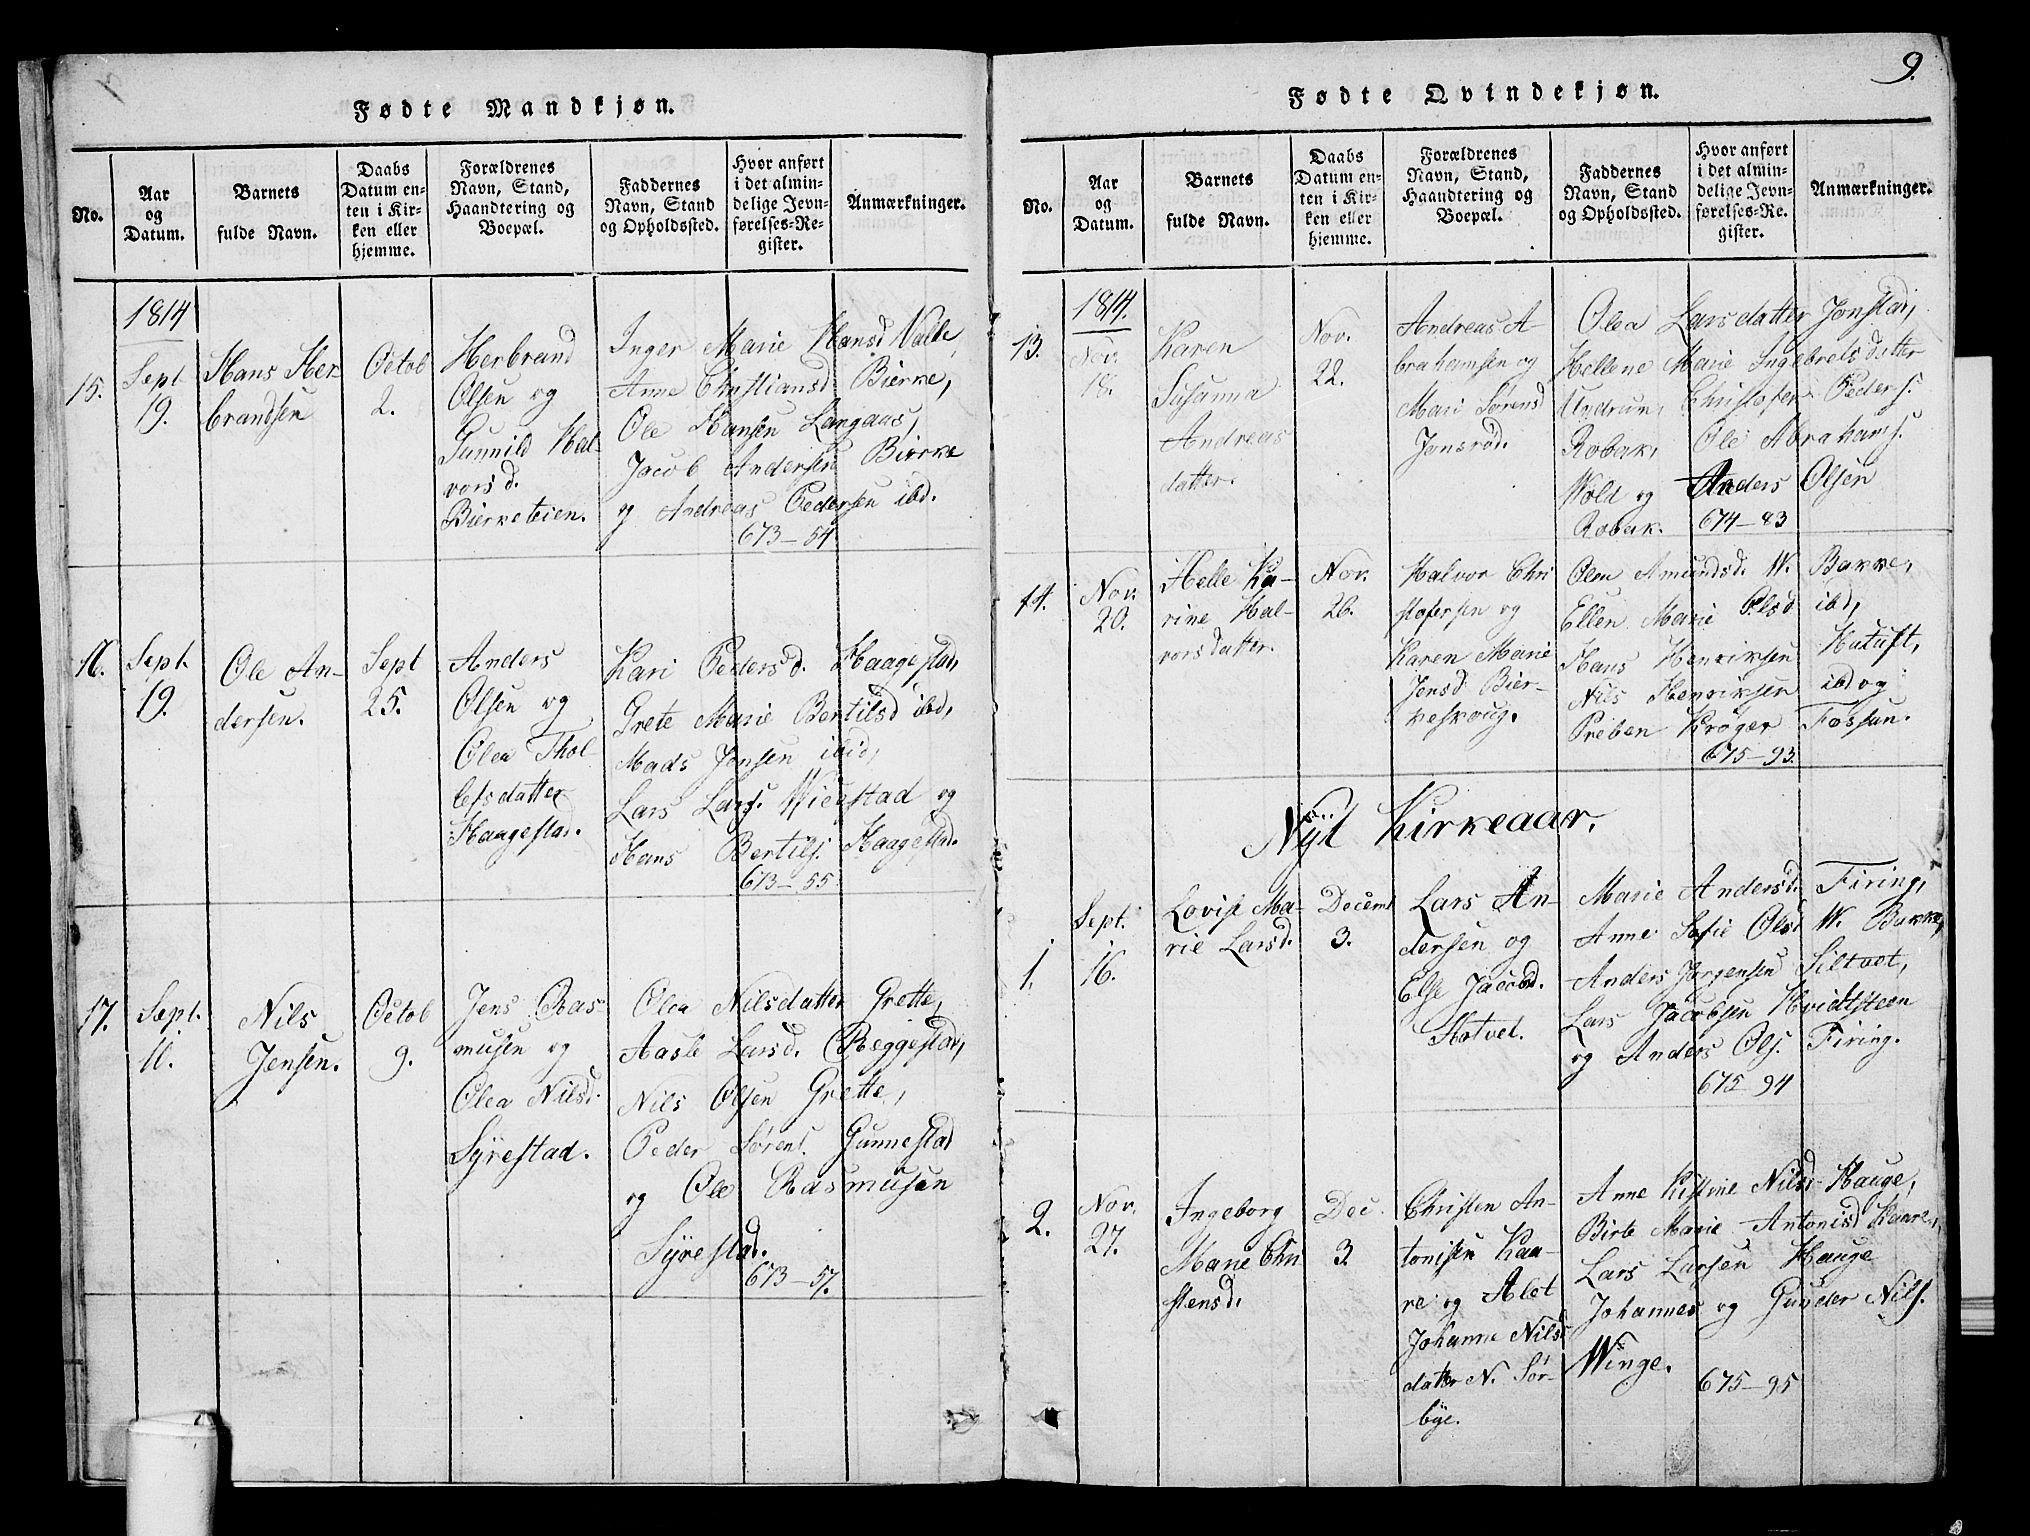 Fødte Mandkjøn.
No.
Aar
og
Datum.
Barnets
fulde Navn.
Daabs
Datum en-
ten i Kir-
ken eller
hjemme.
Forældrenes
Navn, Stand,
Haandtering og
Boepæl.
Faddernes
Navn, Stand
og Opholdssted.
Hvor anført
i det almin-
delige Jevn-
førelses-Re-
gister.
Anmærkninger.
15.
1814
Sept
19.
Hans Her-
brandsen
Octob
2.
Herbrand
Olsen og
Gunnild Hal-
vorsd.
Bierketeien.
Inger Marie Hansd Valle,
Anne Christiansd Bierke,
Ole Hansen Langaas,
Jacob Andersen Bierke
og Andreas Pedersen ibd.
673-54
16.
Sept.
19.
Ole An-
dersen.
Sept
25.
Anders
Olsen og
Olea Thol
lefsdatter
Haagestad.
Kari Pedersd. Haagestad,
Grete Marie Bertilsd ibd,
Mads Jensen ibid,
Lars Lars. Wiegstad og
Hans Bertils. Haagestad.
673-55
17.
Sept.
11.
Nils
Jensen.
Octob
9.
Jens Ras-
musen og
Olea Nilsd.
Syrestad.
Olea Nilsdatter Grette,
Aasle Larsd. Reggestad,
Nils Olsen Grette,
Peder Sørens. Gunnestad
og Ole Rasmusen
Syrestad.
673-57.
9.
Fødte Qvindekjøn.
No.
Aar
og
Datum.
Barnets
fulde Navn.
Daabs
Datum en-
ten i Kir-
ken eller
hjemme.
Forældrenes
Navn, Stand,
Haandtering og
Boepæl.
Faddernes
Navn, Stand
og Opholdssted.
Hvor anført
i det almin-
delige Jevn-
førelses-Re-
gister.
Anmærkninger.
13.
1814.
Nov.
18.
Karen
Susanna
Andreas
datter.
Nov.
22.
Andreas A-
brahamsen og
Mari Sørensd
Jonsrød.
Olea Larsdatter Jonstad,
Hellene Marie Ingebretsdatter
Undrum, Christofer Peders.
Robak, Ole Abrahams.
Wold og Anders Olsen
Robak.
674-83
14.
Nov.
20.
Helle Ka-
rine Hal-
vorsdatter.
Nov.
26.
Halvor Chri
stofersen og
Karen Marie
Jensd Bier-
keskoug.
Olea Amundsd. W. Bakke,
Ellen Marie Olsd ibd,
Hans Henriksen Hatuft,
Nils Henriksen ibd og
Preben Krøger Fossun.
675-93.
Nyt Kirkeaar.
1.
Sept.
16.
Lovise Ma-
rie Larsd.
Decemb
3.
Lars An-
dersen og
Else Jacobd.
Hotvet.
Marie Andersd. Firing,
Anne Sofie Olsd W. Bakke,
Anders Jørgensen Siltvet,
Lars Jacobsen Hvidtsteen
og Anders Ols. Firing.
675-94
2.
Nov.
27.
Ingeborg
Marie Chri
stensd.
Dec.
3.
Christen An-
tonisen Kaa-
re og Alet
Johanne Nilsd
datter N. Sør-
bye.
Anne Kistine Nilsd Hauge,
Birte Marie Antonisd Kaare,
Lars Larsen Hauge
Johannes og Gunder Nils.
Winge.
675-95